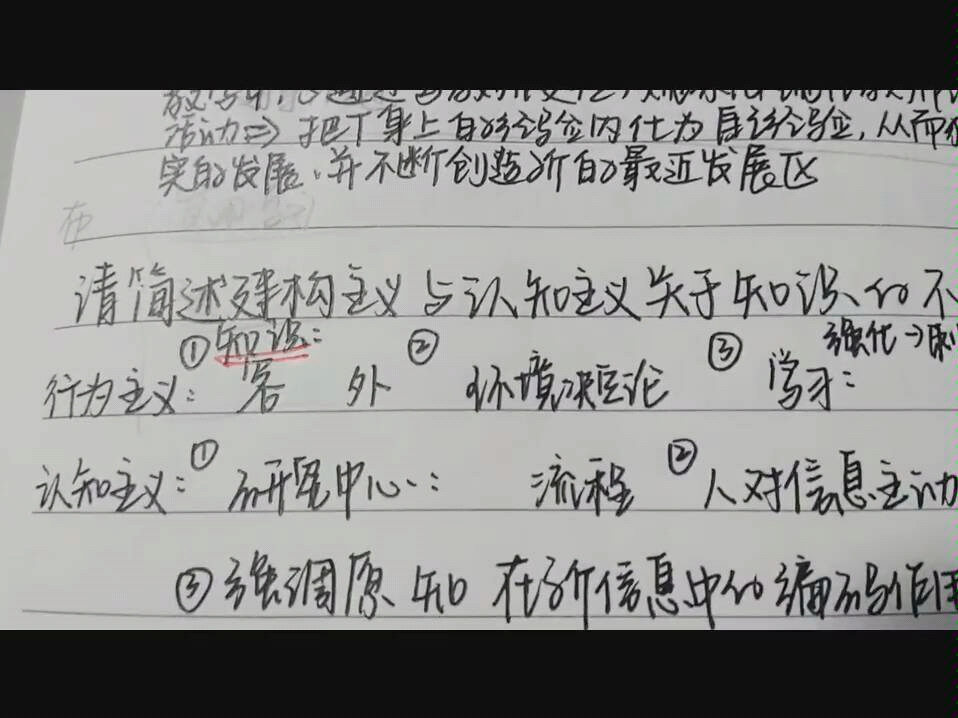 活动⇒把个身上的经验内化为自该经验,从而
实的发展、并不断创造新的最近发展区
请简述建构主义与认知主义关于知识的不
① 知识: ② ③ 强化→
行为主义: 客 外 环境决定论 学习:
认知主义: ① 研究中心: 流程 ② 人对信息主动
③ 强调原知在新信息中的编码作用